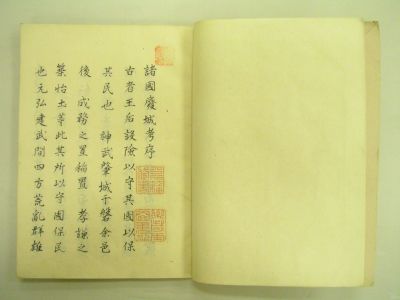 諸國廢城考序
古者王后設險以守其國以保
其民也　神武肇城于磐余邑
後　成務之置稲置　孝謙之
築怡土等此其所以守國保民
也元弘建武間四方荒亂群雄